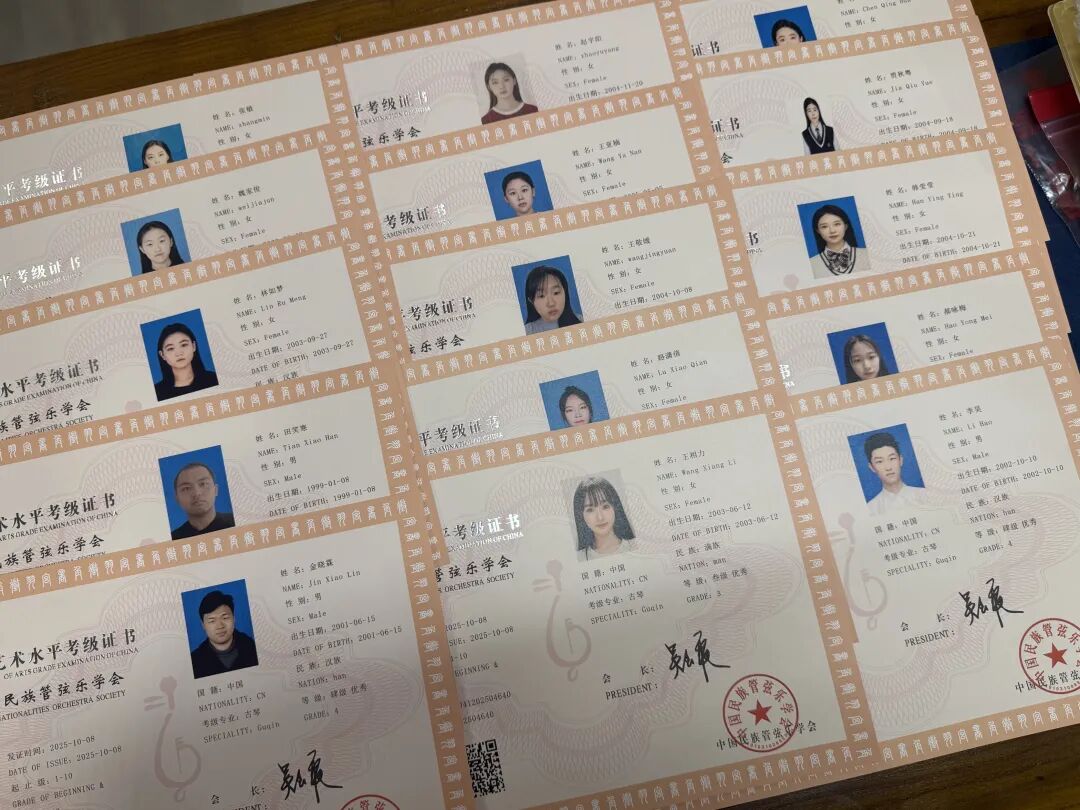 姓 名：张敏
NAME: zhangmin
性 别：女
平考级证书
姓 名：魏家俊
NAME: weijiajun
性 别：女
SEX: Female
平考级证书
姓 名：林如梦
NAME: Lin Ru Meng
性 别：女
SEX: Female
出生日期：2003-09-27
DATE OF BIRTH：2003-09-27
民 族：汉族
水平考级证书
ARTS GRADE EXAMINATION OF CHINA
族管弦乐学会
ORCHESTRA SOCIETY
姓 名：田笑寒
NAME: Tian Xiao Han
性 别：男
SEX: Male
出生日期：1999-01-08
DATE OF BIRTH：1999-01-08
术水平考级证书
ARTS GRADE EXAMINATION OF CHINA
民族管弦乐学会
ORCHESTRA SOCIETY
姓 名：金晓霖
NAME: Jin Xiao Lin
性 别：男
SEX: Male
出生日期：2001-06-15
DATE OF BIRTH：2001-06-15
民 族：汉族
NATION: han
国 籍：中国
NATIONALITY: CN
等 级：肆级 优秀
考级专业：古琴
GRADE: 4
SPECIALITY: Guqin
艺术水平考级证书
OF ARTS GRADE EXAMINATION OF CHINA
民族管弦乐学会
NATIONALITIES ORCHESTRA SOCIETY
发证时间：2025-10-08
DATE OF ISSUE：2025-10-08
起 止 级：1-10
GRADE OF BEGINNING &
会 长：
姓 名：赵宇阳
NAME: zhaoyuyang
性 别：女
SEX: Female
出生日期：2004-11-20
平考级证书
EXAMINATION OF CHINA
弦乐学会
姓 名：王亚楠
NAME: Wang Ya Nan
性 别：女
SEX: Female
考级证书
EXAMINATION OF CHINA
姓 名：王敬媛
NAME: wangjingyuan
性 别：女
SEX: Female
出生日期：2004-10-08
考级证书
EXAMINATION OF CHINA
弦乐学会
姓 名：路潇倩
NAME: Lu Xiao Qian
性 别：女
SEX: Female
平考级证书
姓 名：王相力
NAME: Wang Xiang Li
性 别：女
SEX: Female
出生日期：2003-06-12
DATE OF BIRTH：2003-06-12
民 族：满族
NATION: man
国 籍：中国
NATIONALITY: CN
等 级：叁级 优秀
考级专业：古琴
GRADE: 3
SPECIALITY: Guqin
平考级证书
EXAMINATION OF CHINA
管弦乐学会
ORCHESTRA SOCIETY
2025-10-08
2025-10-08
1-10
BEGINNING &
会 长：
PRESIDENT：
中国民族管弦乐学会
NAME: Chen Qing
性 别：女
证书
姓 名：贾秋粤
NAME: Jia Qiu Yue
性 别：女
SEX: Female
出生日期：2004-09-18
DATE OF BIRTH：2004-09-18
证书
姓 名：韩莹莹
NAME: Han Ying Ying
性 别：女
SEX: Female
出生日期：2004-10-21
DATE OF BIRTH：2004-10-21
姓 名：郝咏梅
NAME: Hao Yong Mei
性 别：女
SEX: Female
姓 名：李昊
NAME: Li Hao
性 别：男
SEX: Male
出生日期：2002-10-10
DATE OF BIRTH：2002-10-10
民 族：汉族
NATION: han
国 籍：中国
NATIONALITY: CN
等 级：肆级 优秀
考级专业：古琴
GRADE: 4
SPECIALITY: Guqin
会 长：
PRESIDENT：
中国民族管弦乐学